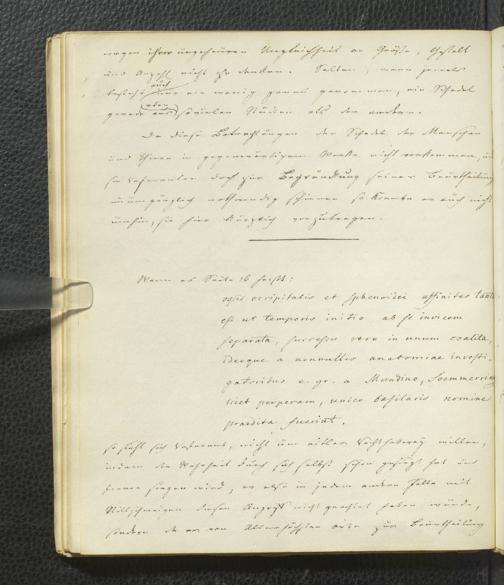 wegen ihrer ungeheuren Ungleichheit an Größe, Gestalt
und Anzahl nicht zu denken. Selten, wenn jemals
besteht auch nur ein wenig genau genommen, ein Schedel
gerade aus eben sovielen Stücken als der andere.
Da diese Betrachtungen der Schedel der Menschen
und Thiere in gegenwärtigem Werke nicht vorkommen,
sie Referenten doch zur Begründung seiner Beurtheilung
unumgänglich nothwendig schienen so konnte er auch nicht
umhin, sie hier kürzlich vorzutragen.
Wenn es Seite 16 heißt:
ossis occipitalis et sphenoidei affinitas tanta
est ut temporis initio ab se invicem
separata, successu vero in unum coalita
ideoque a nonnullis anatomiae investi-
gatoribus e. gr. a Mundino, Soemmerring
licet perperam, unico basilaris nomine
praedita fuerint.
so sieht sich Referent, nicht um eitler Rechthaberey willen,
indem die Wahrheit durch sich selbst schon gesiegt hat und
ferner siegen wird, er also in jedem andern Falle mit
Stillschweigen diesen Angriff nicht geachtet haben würde,
sondern da er von
zur Beurtheilung